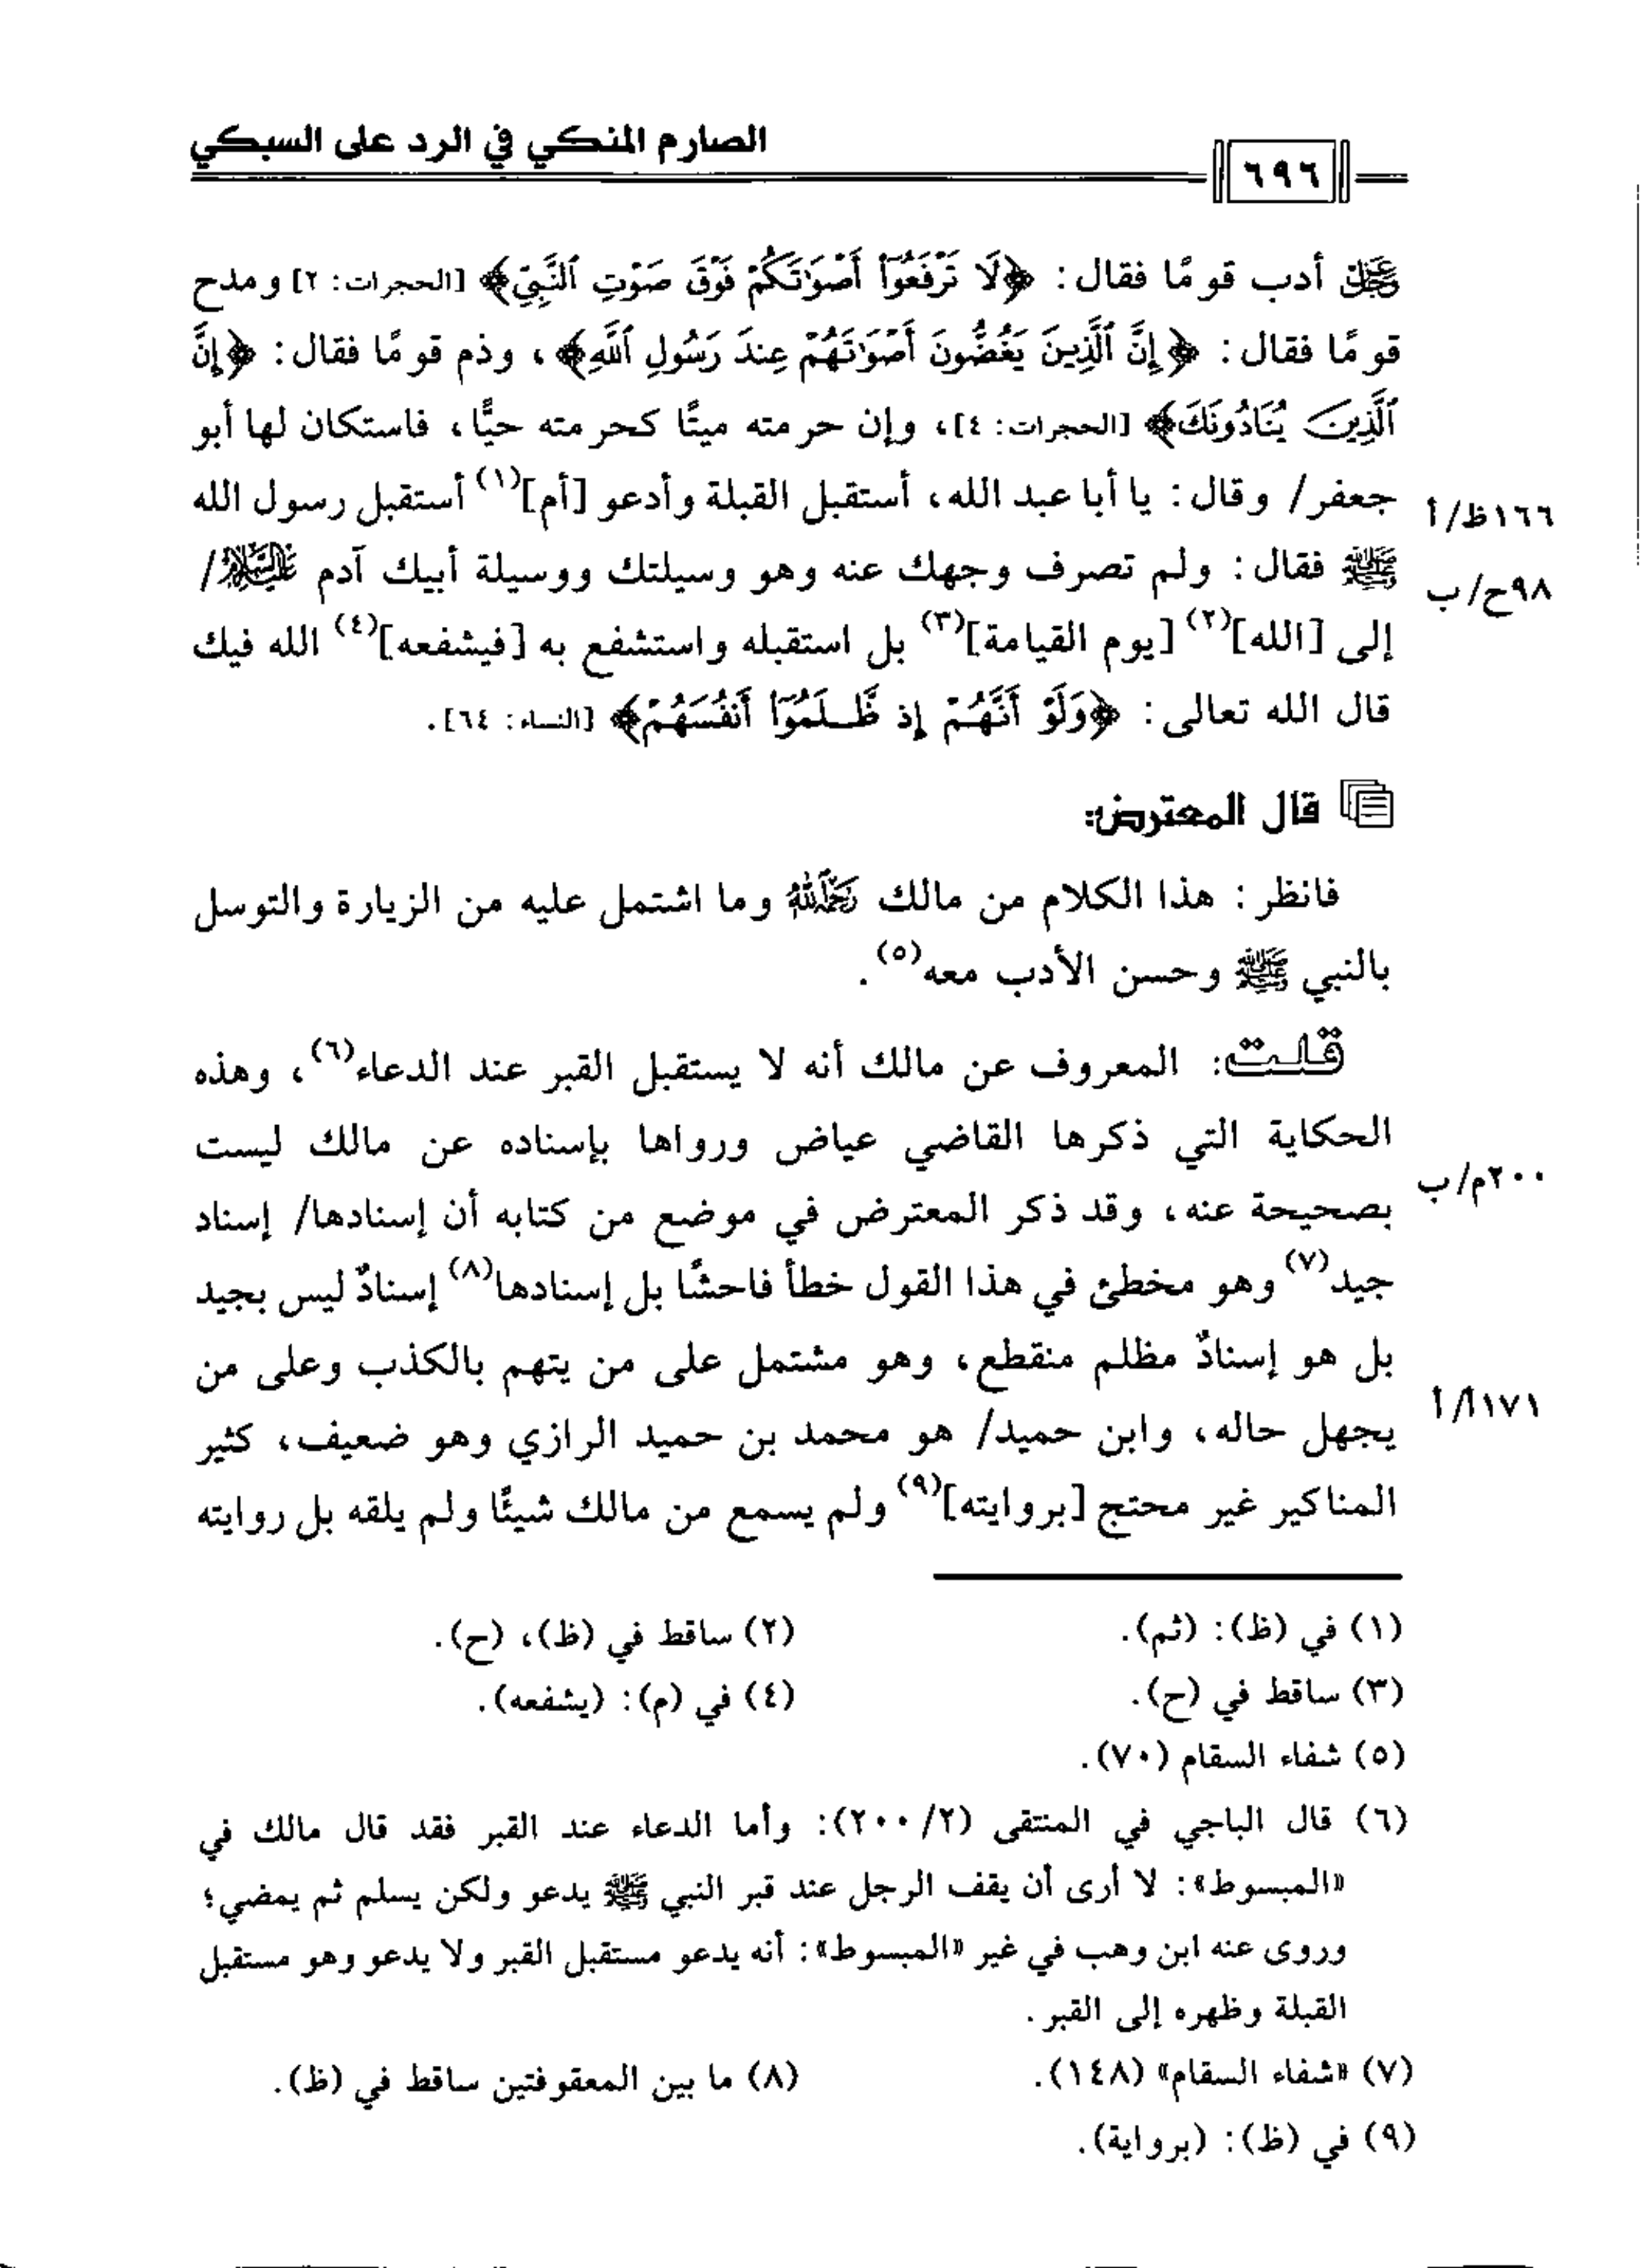 الصارم المنكي في الرد على السبكي
٦٩٦
عَزَّوَجَلَّ أدب قومًا فقال: ﴿لَا تَرْفَعُوٓا۟ أَصْوَٰتَكُمْ فَوْقَ صَوْتِ ٱلنَّبِىِّ﴾ [الحجرات: ٢] ومدح
قومًا فقال: ﴿إِنَّ ٱلَّذِينَ يَغُضُّونَ أَصْوَٰتَهُمْ عِندَ رَسُولِ ٱللَّهِ﴾، وذم قومًا فقال: ﴿إِنَّ
ٱلَّذِينَ يُنَادُونَكَ﴾ [الحجرات: ٤]، وإن حرمته ميتًا كحرمته حيًّا، فاستكان لها أبو
جعفر/ وقال: يا أبا عبد الله، أستقبل القبلة وأدعو [أم](١) أستقبل رسول الله
١٦٦ظ/أ
ﷺ فقال: ولم تصرف وجهك عنه وهو وسيلتك ووسيلة أبيك آدم عَلَيْهِ السَّلَام/
٩٨ح/ب
إلى [الله](٢) [يوم القيامة](٣) بل استقبله واستشفع به [فيشفعه](٤) الله فيك
قال الله تعالى: ﴿وَلَوْ أَنَّهُمْ إِذ ظَّلَمُوٓا۟ أَنفُسَهُمْ﴾ [النساء: ٦٤].
قال المعترض:
فانظر: هذا الكلام من مالك رَحِمَهُ اللَّهُ وما اشتمل عليه من الزيارة والتوسل
بالنبي ﷺ وحسن الأدب معه(٥).
قلت: المعروف عن مالك أنه لا يستقبل القبر عند الدعاء(٦)، وهذه
الحكاية التي ذكرها القاضي عياض ورواها بإسناده عن مالك ليست
٢٠٠م/ب
بصحيحة عنه، وقد ذكر المعترض في موضع من كتابه أن إسنادها/ إسناد
جيد(٧) وهو مخطئ في هذا القول خطأ فاحشًا بل إسنادها(٨) إسنادٌ ليس بجيد
بل هو إسنادٌ مظلم منقطع، وهو مشتمل على من يتهم بالكذب وعلى من
١٧١أ/أ
يجهل حاله، وابن حميد/ هو محمد بن حميد الرازي وهو ضعيف، كثير
المناكير غير محتج [بروايته](٩) ولم يسمع من مالك شيئًا ولم يلقه بل روايته
(١) في (ظ): (ثم).
(٢) ساقط في (ظ)، (ح).
(٣) ساقط في (ح).
(٤) في (م): (يشفعه).
(٥) شفاء السقام (٧٠).
(٦) قال الباجي في المنتقى (٢/ ٢٠٠): وأما الدعاء عند القبر فقد قال مالك في
«المبسوط»: لا أرى أن يقف الرجل عند قبر النبي ﷺ يدعو ولكن يسلم ثم يمضي؛
وروى عنه ابن وهب في غير «المبسوط»: أنه يدعو مستقبل القبر ولا يدعو وهو مستقبل
القبلة وظهره إلى القبر.
(٧) «شفاء السقام» (١٤٨).
(٨) ما بين المعقوفتين ساقط في (ظ).
(٩) في (ظ): (برواية).